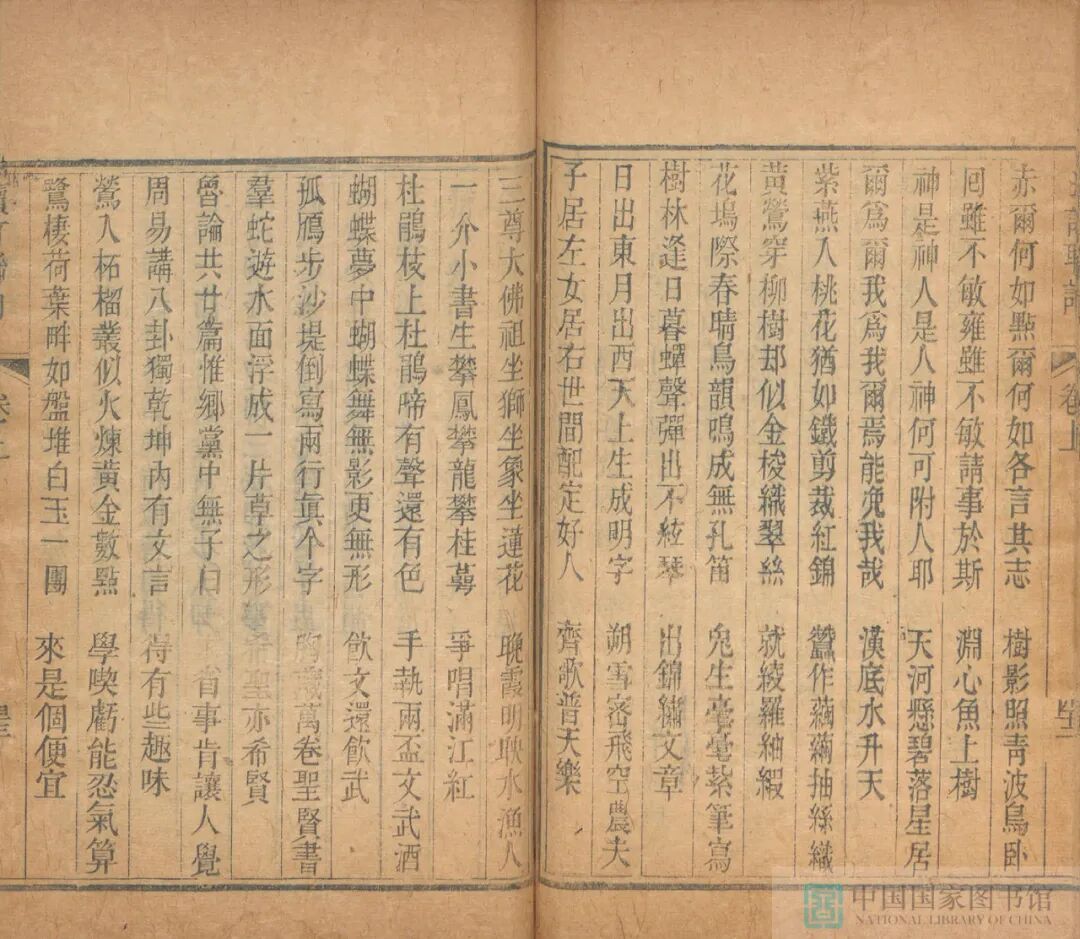 卷上
赤爾何如點爾何如各言其志　樹影照青波鳥臥
回雖不敏雍雖不敏請事於斯　淵心魚上樹
神是神人是人神何可附人耶　天河懸碧落星居
爾爲爾我爲我爾焉能浼我哉　漢底水升天
紫燕入桃花猶如鐵剪裁紅錦　蠶作繭繭抽絲織
黃鶯穿柳樹却似金梭織翠絲　就綾羅紬緞
花塢際春晴鳥韻鳴成無孔笛　兔生毫毫紮筆寫
樹林逢日暮蟬聲彈出不絃琴　出錦繡文章
日出東月出西天上生成明字　朔雪密飛空農夫
子居左女居右世間配定好人　齊歌普天樂
三尊大佛祖坐獅坐象坐蓮花　晚霞明映水漁人
一介小書生攀鳳攀龍攀桂蕚　爭唱滿江紅
杜鵑枝上杜鵑啼有聲還有色　手執兩盃文武酒
蝴蝶夢中蝴蝶舞無影更無形　飲文還飲武
孤鴈步沙堤倒寫兩行眞个字　胸藏萬卷聖賢書
羣蛇遊水面浮成一片草之形　希聖亦希賢
魯論共廿篇惟鄉黨中無子曰　省事肯讓人覺
周易講八卦獨乾坤內有文言　得有些趣味
鶯入柘榴叢似火煉黃金數點　學喫虧能忍氣算
鷺棲荷葉畔如盤堆白玉一團　來是個便宜
中国国家图书馆
NATIONAL LIBRARY OF CHINA